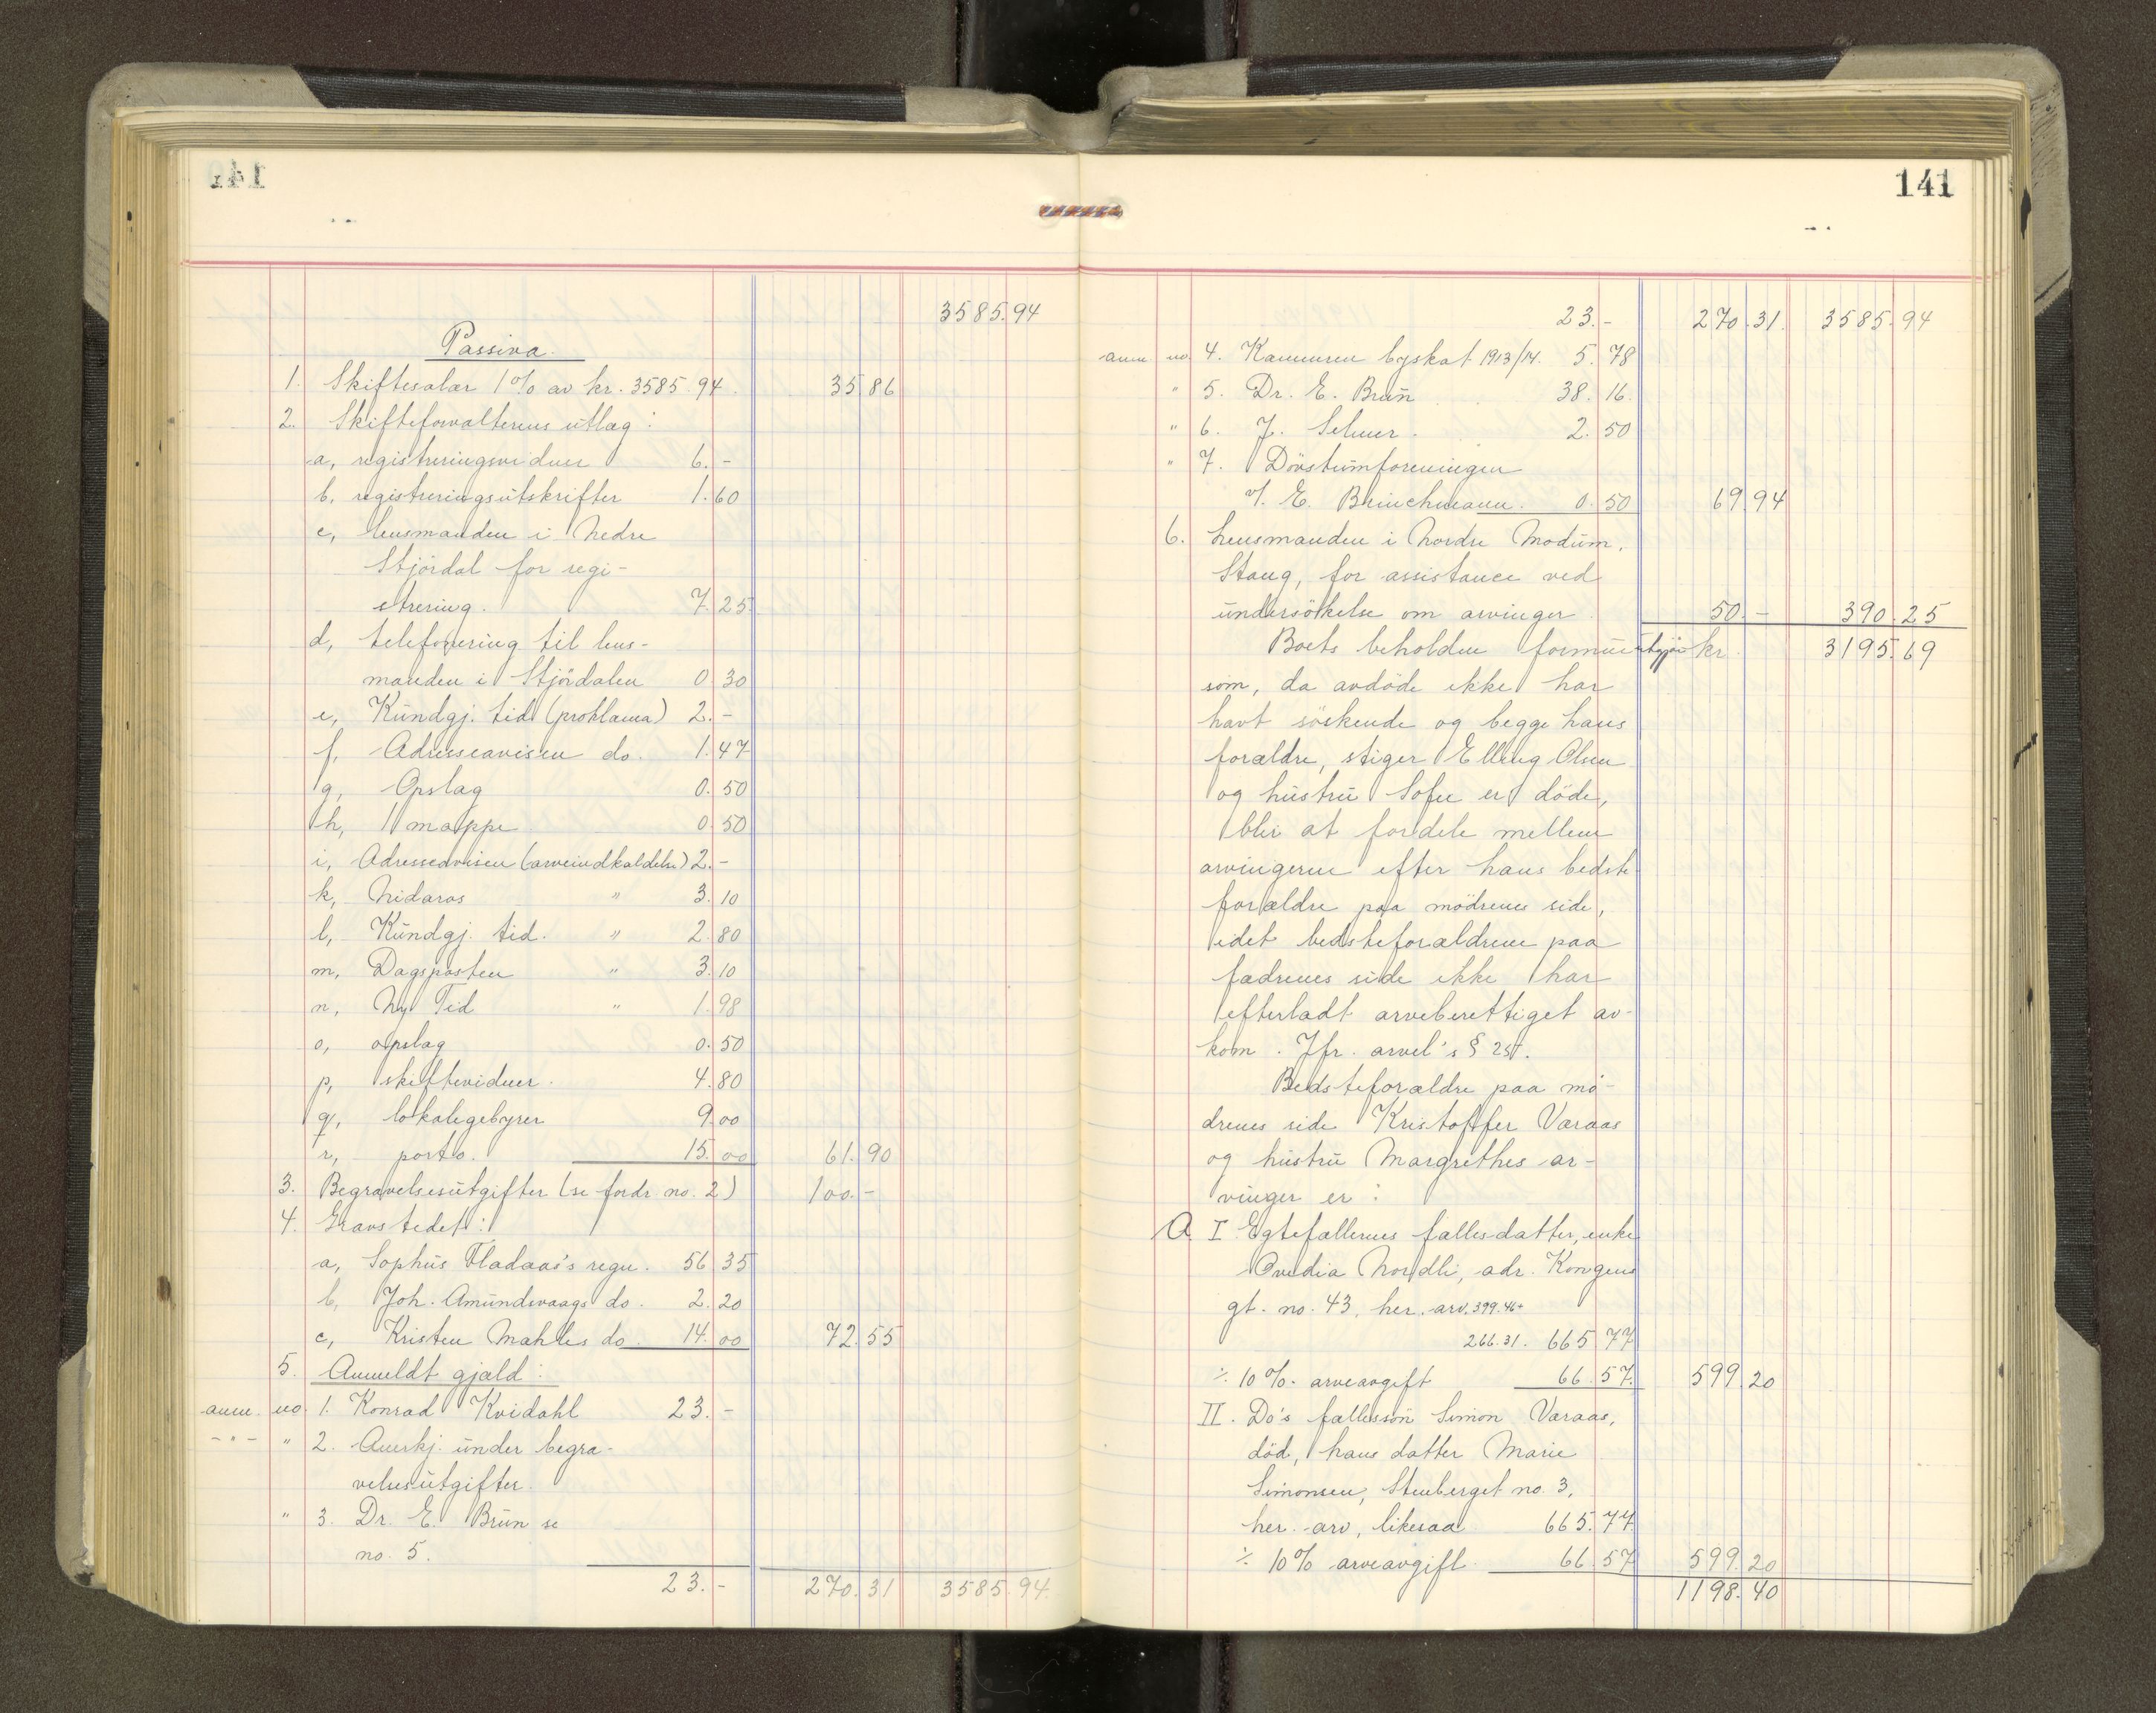 141
3585.94
Passiva.
1. Skiftesalær 1% av kr. 3585.94. 35 86
2. Skifteforvalterens utlæg:
a, registreringsvidner 6. -
b, registreringsutskrifter 1.60
c, lensmanden i Nedre
Stjördal for regi-
strering. 7.25
d, telefonering til lens-
manden i Stjördalen 0 30
e, Kundgj. tid. (proklama) 2. -
f, Adresseavisen do. 1.47
g, Opslag 0.50
h, 1 mappe 0.50
i, Adresseavisen (arveindkaldelse) 2. -
k, Nidaros " 3.10
l, Kundgj. tid. " 2.80
m, Dagsposten " 3.10
n, Ny Tid " 1.98
o, opslag 0.50
p, skiftevidner. 4.80
q, lokalegebyrer 9.00
r, porto. 15.00 61.90
3. Begravelsesutgifter (se fordr. no. 2) 100. -
4. Gravstedet:
a, Sophus Fladaas's regn. 56 35
b, Joh. Amundsvaags do. 2.20
c, Kristen Mahles do. 14.00 72.55
5. Anmeldt gjæld:
anm. no. 1. Konrad Kvidahl 23. -
- " - " 2. Anerkj. under begra-
velsesutgifter.
" 3. Dr. E. Brun se
no. 5.
23. - 270.31 3585.94
141
23. - 270.31. 3585.94
anm. no. 4. Kæmneren byskat 1913/14. 5.78
" 5. Dr. E. Brun 38.16.
" 6. J. Selmer. 2.50
" 7. Dövstumforeningen
v/. E. Brinchmann. 0.50 69.94
6. Lensmanden i Nordre Modum,
Stang, for assistance ved
undersökelse om arvinger 50. - 390.25
Boets beholdne formue utgjör kr. 3195.69
som, da avdöde ikke har
havt söskende og begge hans
forældre, stiger Elling Olsen
og hustru Sofie er döde,
blir at fordele mellem
arvingerne efter hans bedste-
forældre paa mödrenes side,
idet bedsteforældrene paa
fædrenes side ikke har
efterladt arveberettiget av-
kom. Jfr. arvel's § 25.
Bedsteforældre paa mö-
drenes side Kristoffer Varaas
og hustru Margrethes ar-
vinger er:
A I Egtefællernes fællesdatter, enke
Ovedia Nordli, adr. Kongens
gt. no. 43, her. arv. 399.46+
266.31. 665 77
÷ 10%. arveavgift 66.57. 599.20
II. Do's fællessön Simon Varaas,
död, hans datter Marie
Simonsen, Stenberget no. 3,
her. arv, likesaa 665.77
÷ 10% arveavgift. 66.57 599.20
1198.40